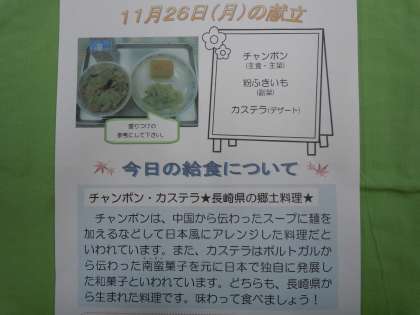 11月26日(月)の献立
チャンポン
(主食・主菜)
粉ふきいも
(副菜)
カステラ(デザート)
盛りつけの
参考にして下さい。
今日の給食について
チャンポン・カステラ★長崎県の郷土料理★
チャンポンは、中国から伝わったスープに麺
を加えるなどして日本風にアレンジした料理だと
いわれています。また、カステラはポルトガル
から伝わった南蛮菓子を元に日本で独自に発展し
た和菓子といわれています。どちらも、長崎県か
ら生まれた料理です。味わって食べましょう！